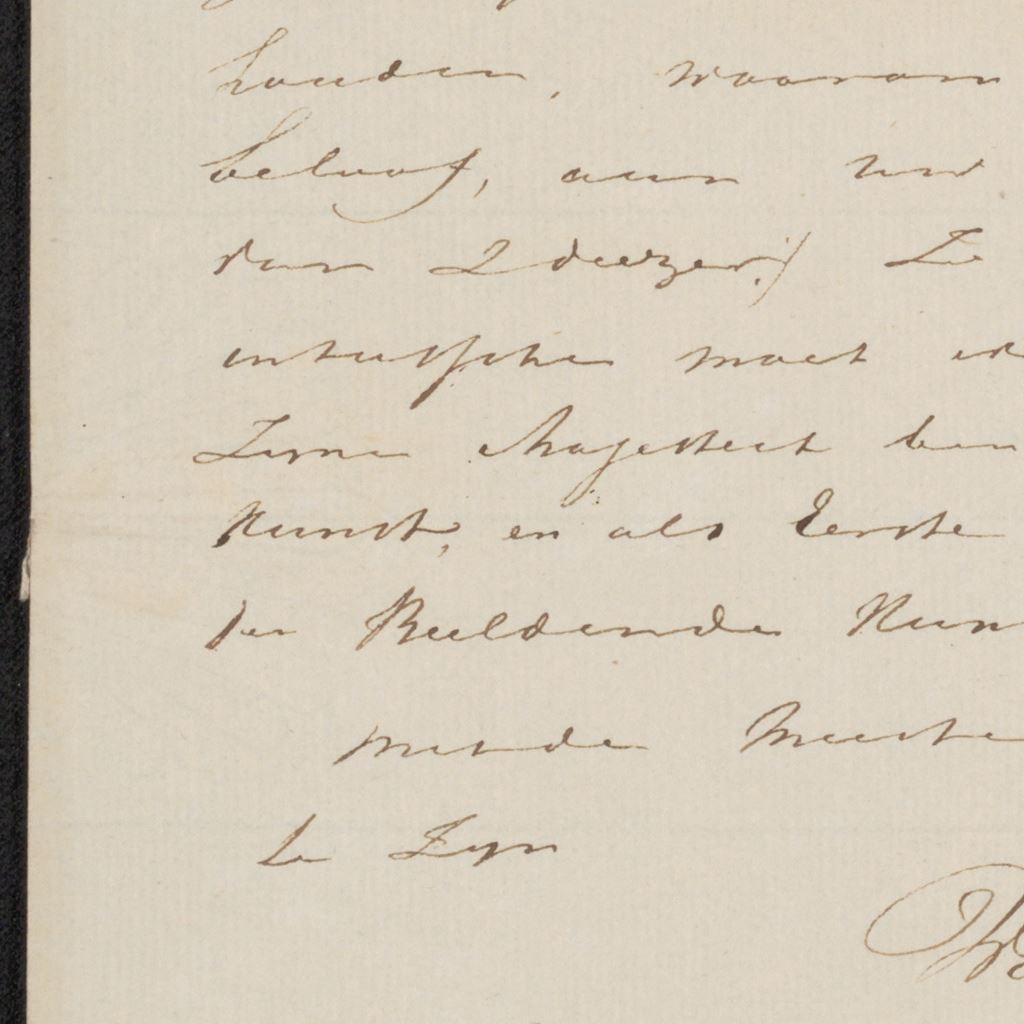 houden, waarom
beloof, aan uw
van 2 deezer:/ Ze
intusschen moet ik
Zyne Majesteit ben
Kunst, en als Eerste
der Beeldende Kun
met de Meeste
te Zyn